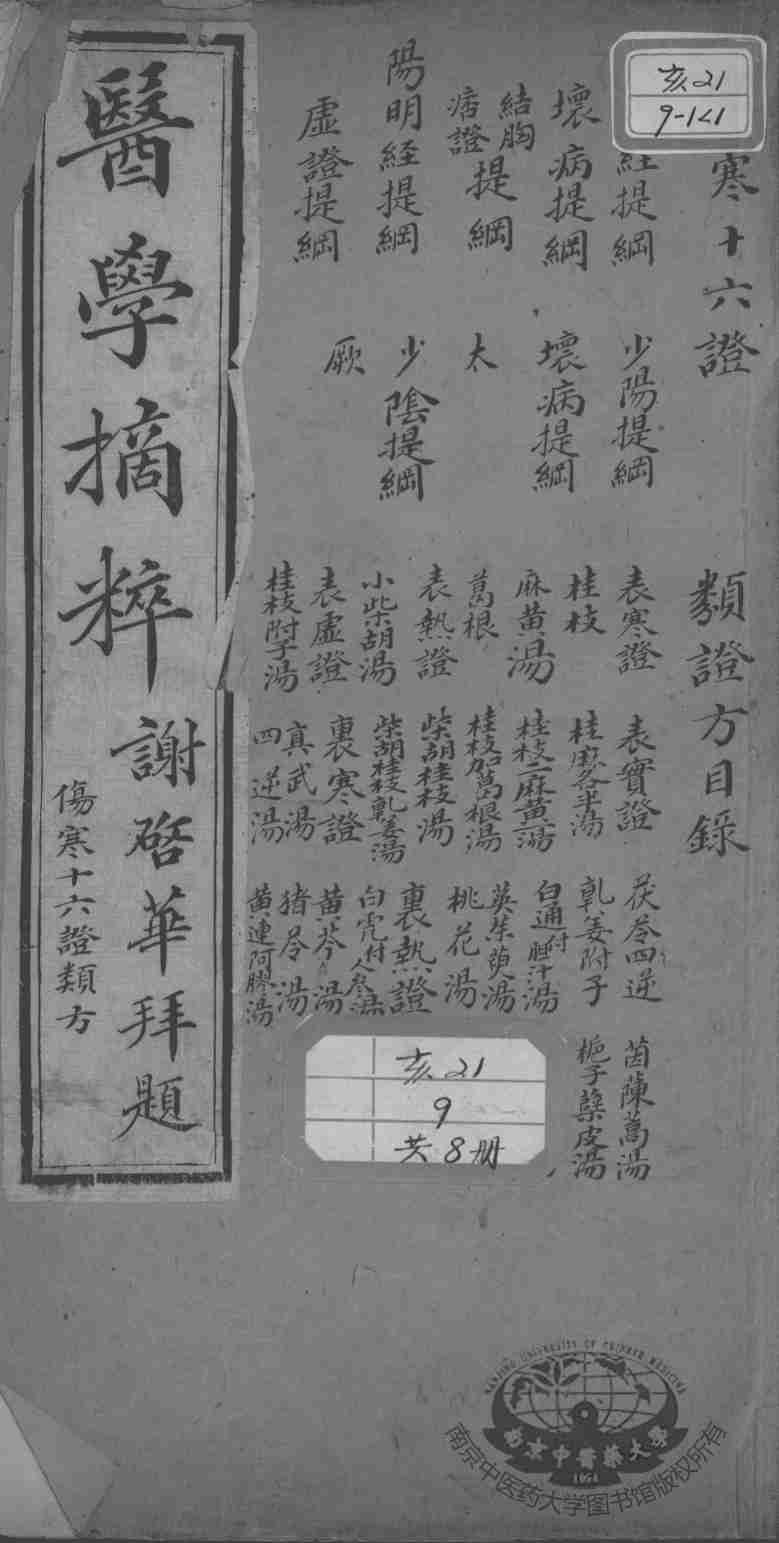 亥21
9-1<1
寒十六證
類證方目錄
經提綱
少陽提綱
壞病提綱
壞病提綱
結胸
痞證
提綱
太
陽明経提綱
少陰提綱
虛證提綱
厥
表寒證
表實證
茯苓四逆
茵陳蒿湯
桂枝
桂麻各半湯
乹姜附子
梔子蘗皮湯
麻黄湯
桂枝二麻黄一湯
白通付胆汁湯
葛根
桂枝加葛根湯
吳茱萸湯
表熱證
柴胡桂枝湯
桃花湯
小柴胡湯
柴胡桂枝乹姜湯
裏熱證
表虛證
裏寒證
白虎付人参湯
桂枝附子湯
真武湯
黄芩湯
四逆湯
猪苓湯
黄連阿膠湯
醫學摘粹
謝啓華拜題
傷寒十六證類方
亥21
9
共8册
NANJING UNIVERSITY OF CHINESE MEDICINE
南京中醫藥大學
1954
南京中医药大学图书馆版权所有